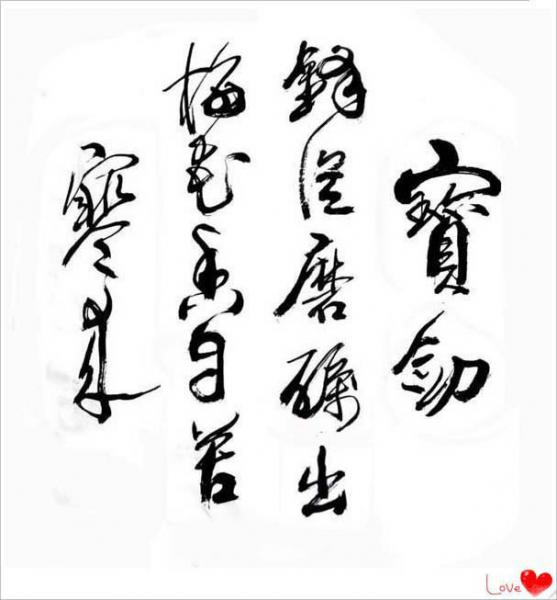 寶劍
鋒從磨礪出
梅花香自苦
寒來
Love